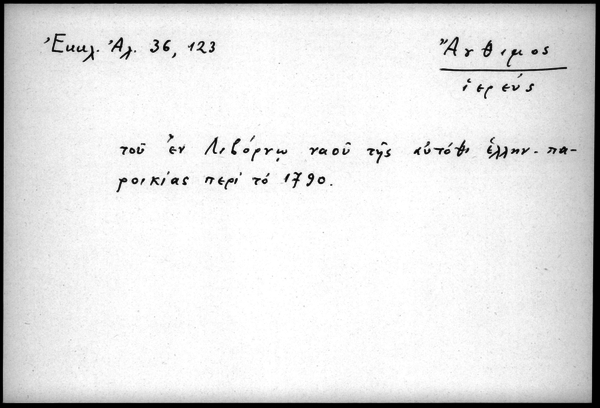 Ἐκκλ. Ἀλ. 36, 123
Ἄνθιμος
ἱερεύς
τοῦ ἐν Λιβόρνῳ ναοῦ τῆς αὐτόθι ἑλλην. πα-
ροικίας περί τό 1790.